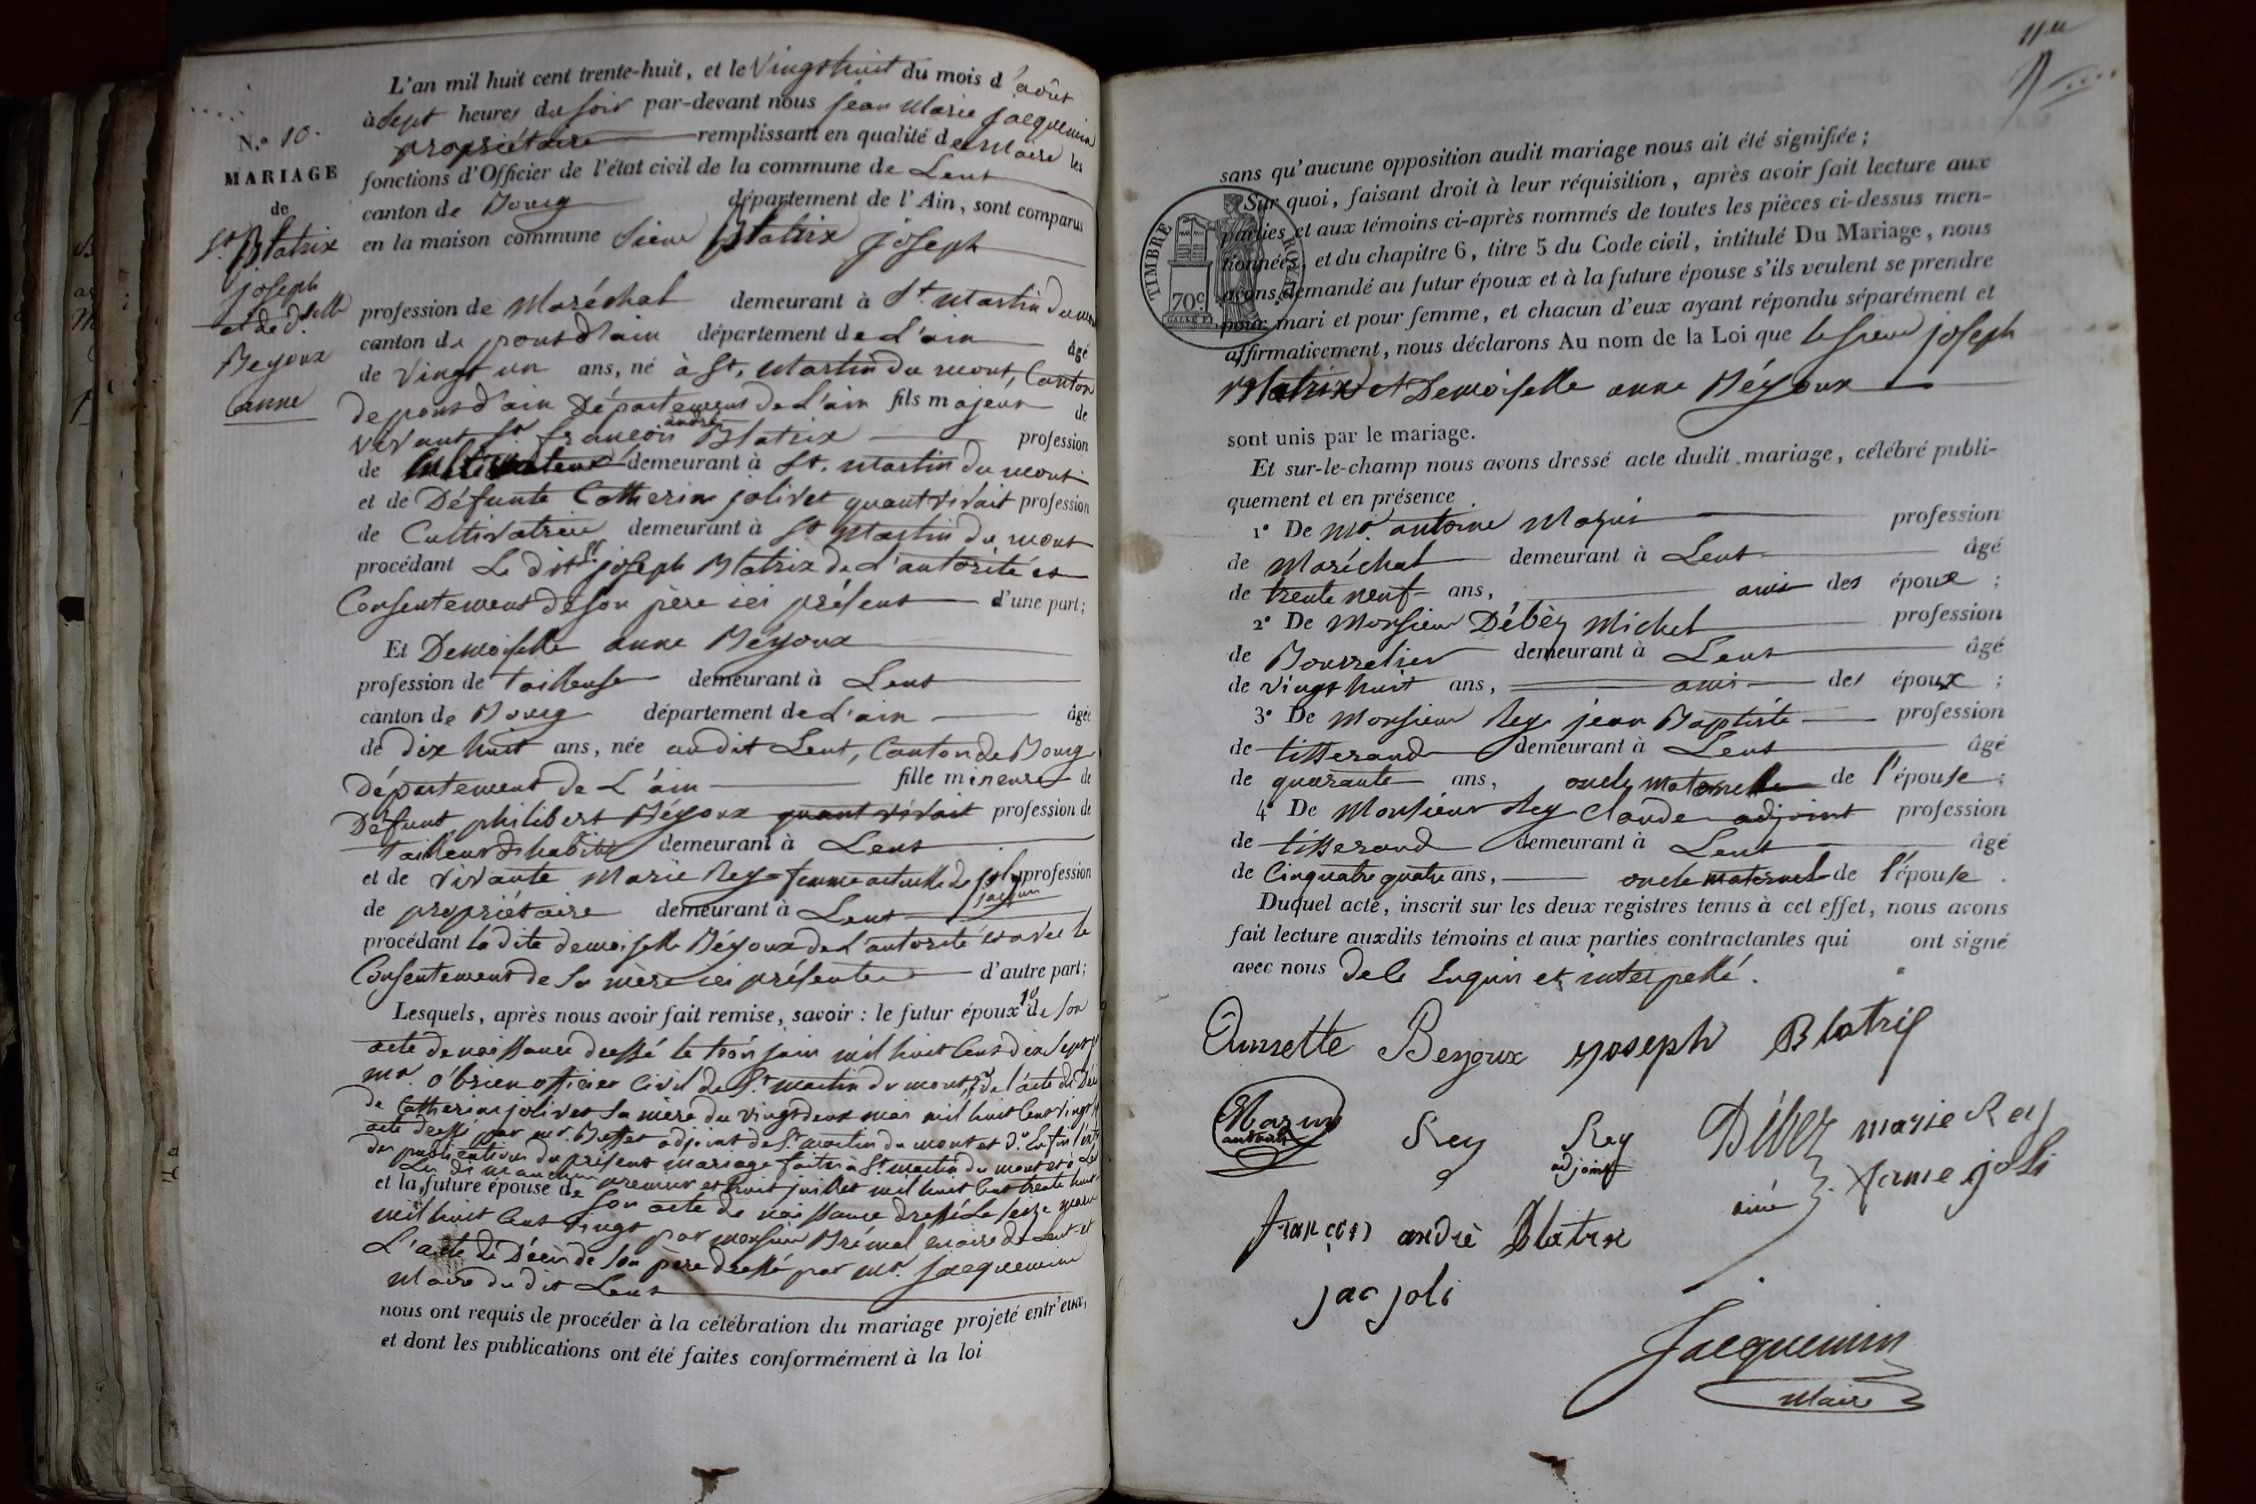 N.º 10.
MARIAGE
de
Sr. Blatrix
joseph
et de dselle
Beyoux
anne
L'an mil huit cent trente-huit, et le vingt huit du mois d'août
à sept heures du soir par-devant nous jean Marie Jacquemin
propriétaire remplissant en qualité de Maire les
fonctions d'Officier de l'état civil de la commune de Lent
canton de Bourg département de l'Ain, sont comparus
en la maison commune Sieur Blatrix joseph
profession de Maréchal demeurant à St. Martin du mont
canton de pont d'ain département de L'ain âgé
de vingt un ans, né à St. Martin du mont, Canton
de pont d'ain Département de L'ain fils majeur de
vivant Sr. françois andré Blatrix profession
de Cultivateur demeurant à St. Martin du mont
et de Défunte Catherine jolivet quant vivait profession
de Cultivatrice demeurant à St Martin du mont
procédant Le dit Sr joseph Blatrix de L'autorité et
Consentement de son père ici présent d'une part;
Et Demoiselle anne Béyoux
profession de tailleuse demeurant à Lent
canton de Bourg département de L'ain âgée
de dix huit ans, née au dit Lent, Canton de Bourg
Département de L'ain fille mineure de
Défunt philibert Béyoux quant vivait profession de
tailleur d'habits demeurant à Lent
et de vivante Marie Rey femme actuelle de joly profession
jacques
de propriétaire demeurant à Lent
procédant la dite demoiselle Béyoux de L'autorité et avec le
Consentement de sa mère ici présente d'autre part;
Lesquels, après nous avoir fait remise, savoir : le futur époux 1º de son
acte de naissance dressé le trois juin mil huit cent dix sept
mr. O'brien officier civil de St martin du mont, 2º de l'acte de Décès
de Catherine jolivet sa mère du vingt deux mai mil huit cent vingt
acte dressé par mr. Buffet adjoint de St martin du mont et 3º Enfin
des publications du présent mariage faites à St. martin du mont et à Lent
Les dimanches premier et huit juillet mil huit cent trente huit
et la future épouse de son acte de naissance dressé Le seize mars
mil huit cent vingt par monsieur Brémal maire de Lent et
L'acte de Décès de son père dressé par mr. Jacquemin
Maire du dit Lent
nous ont requis de procéder à la célébration du mariage projeté entr'eux,
et dont les publications ont été faites conformément à la loi
sans qu'aucune opposition audit mariage nous ait été signifiée;
Sur quoi, faisant droit à leur réquisition, après avoir fait lecture aux
parties et aux témoins ci-après nommés de toutes les pièces ci-dessus men-
tionnées, et du chapitre 6, titre 5 du Code civil, intitulé Du Mariage, nous
avons demandé au futur époux et à la future épouse s'ils veulent se prendre
pour mari et pour femme, et chacun d'eux ayant répondu séparément et
affirmativement, nous déclarons Au nom de la Loi que le sieur joseph
Blatrix et Demoiselle anne Béyoux
sont unis par le mariage.
Et sur-le-champ nous avons dressé acte dudit mariage, célébré publi-
quement et en présence
1º De Mr. antoine Mazui profession
de Maréchal demeurant à Lent âgé
de trente neuf ans, ami des époux ;
2º De Monsieur Débèz Michel profession
de Bourrelier demeurant à Lent âgé
de vingt huit ans, ami des époux ;
3º De Monsieur Rey jean Baptiste profession
de tisserand demeurant à Lent âgé
de quarante ans, oncle maternelle de l'épouse ;
4º De Monsieur Rey Claude adjoint profession
de tisserand demeurant à Lent âgé
de Cinquate quatre ans, oncle maternel de l'épouse .
Duquel acte, inscrit sur les deux registres tenus à cet effet, nous avons
fait lecture auxdits témoins et aux parties contractantes qui ont signé
avec nous de ce Enquis et interpellé.
TIMBRE ROYAL
70c.
Annette Beyoux joseph Blatrix
Mazuy
antoine
Rey Rey
adjoint
Débez
ainé
marie Rey
fame joli
françois andré Blatrix
jac joli
Jacquemin
Maire